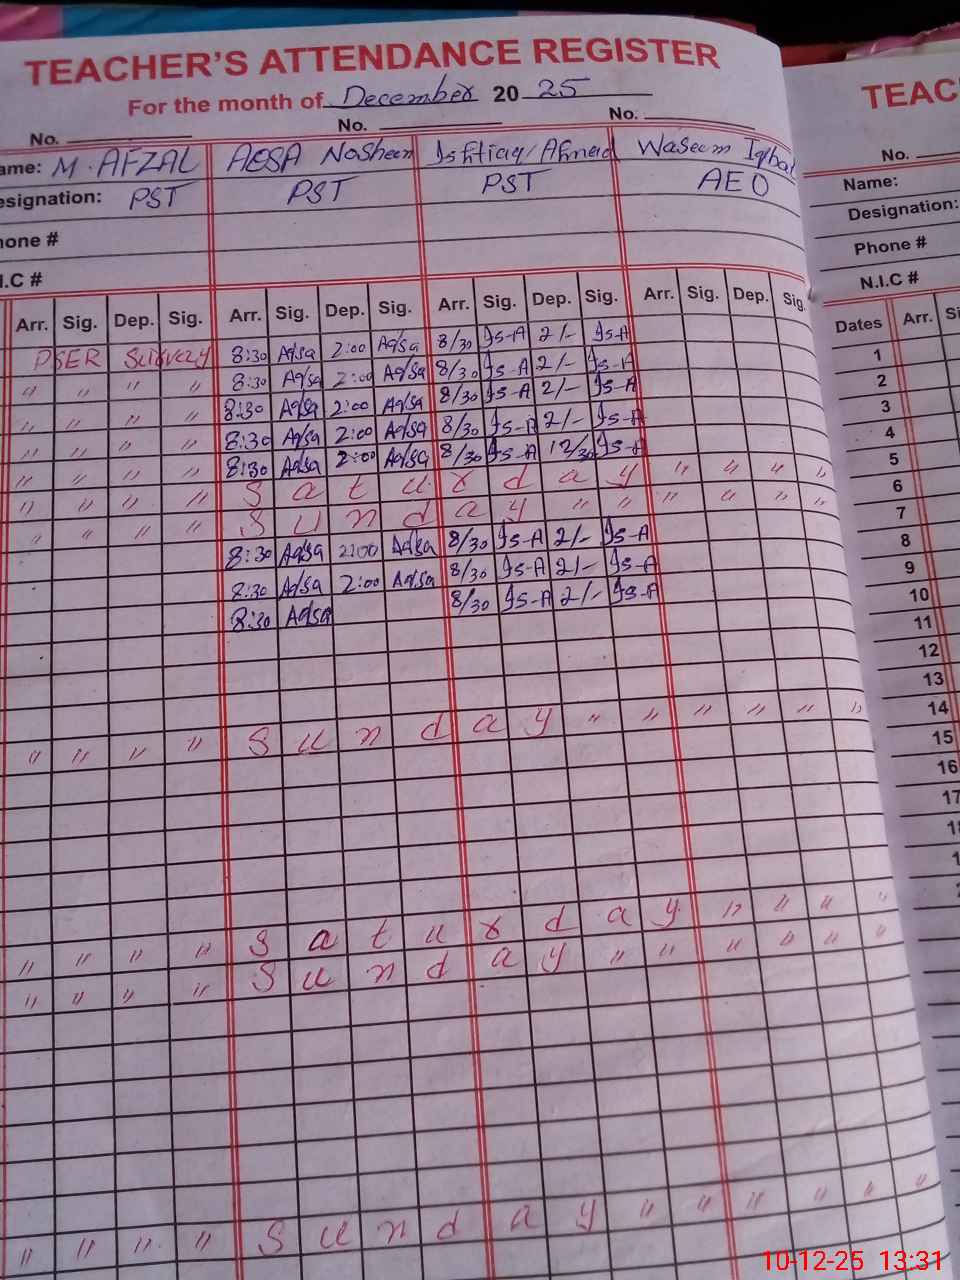 TEACHER'S ATTENDANCE REGISTER
For the month of December 20 25
No. No. No.
ame: M. AFZAL AQSA Nosheen Ishtiaq Ahmed Waseem Iqbal
esignation: PST PST PST AEO
hone #
I.C #
Arr. Sig. Dep. Sig. Arr. Sig. Dep. Sig. Arr. Sig. Dep. Sig. Arr. Sig. Dep. Sig.
PSER 8:30 Aqsa 2:00 Aqsa 8/30 Is-A 2/- Is-A
" " " " 8:30 Aqsa 2:00 Aqsa 8/30 Is-A 2/- Is-A
" " " " 8:30 Aqsa 2:00 Aqsa 8/30 Is-A 2/- Is-A
" " " " 8:30 Aqsa 2:00 Aqsa 8/30 Is-A 2/- Is-A
" " " " 8:30 Aqsa 2:00 Aqsa 8/30 Is-A 12/30 Is-A
" " " " S a t u r d a y " " " "
" " " " S u n d a y " " " " " "
8:30 Aqsa 2:00 Aqsa 8/30 Is-A 2/- Is-A
8:30 Aqsa 2:00 Aqsa 8/30 Is-A 2/- Is-A
8:30 Aqsa 8/30 Is-A 2/- Is-A
" " " " S u n d a y " " " " " "
" " " " S a t u r d a y " " " "
" " " " S u n d a y " " " " " "
" " " " S u n d a y " " " " " "
TEAC
No.
Name:
Designation:
Phone #
N.I.C #
Dates Arr. Si
1
2
3
4
5
6
7
8
9
10
11
12
13
14
15
16
17
10-12-25 13:31